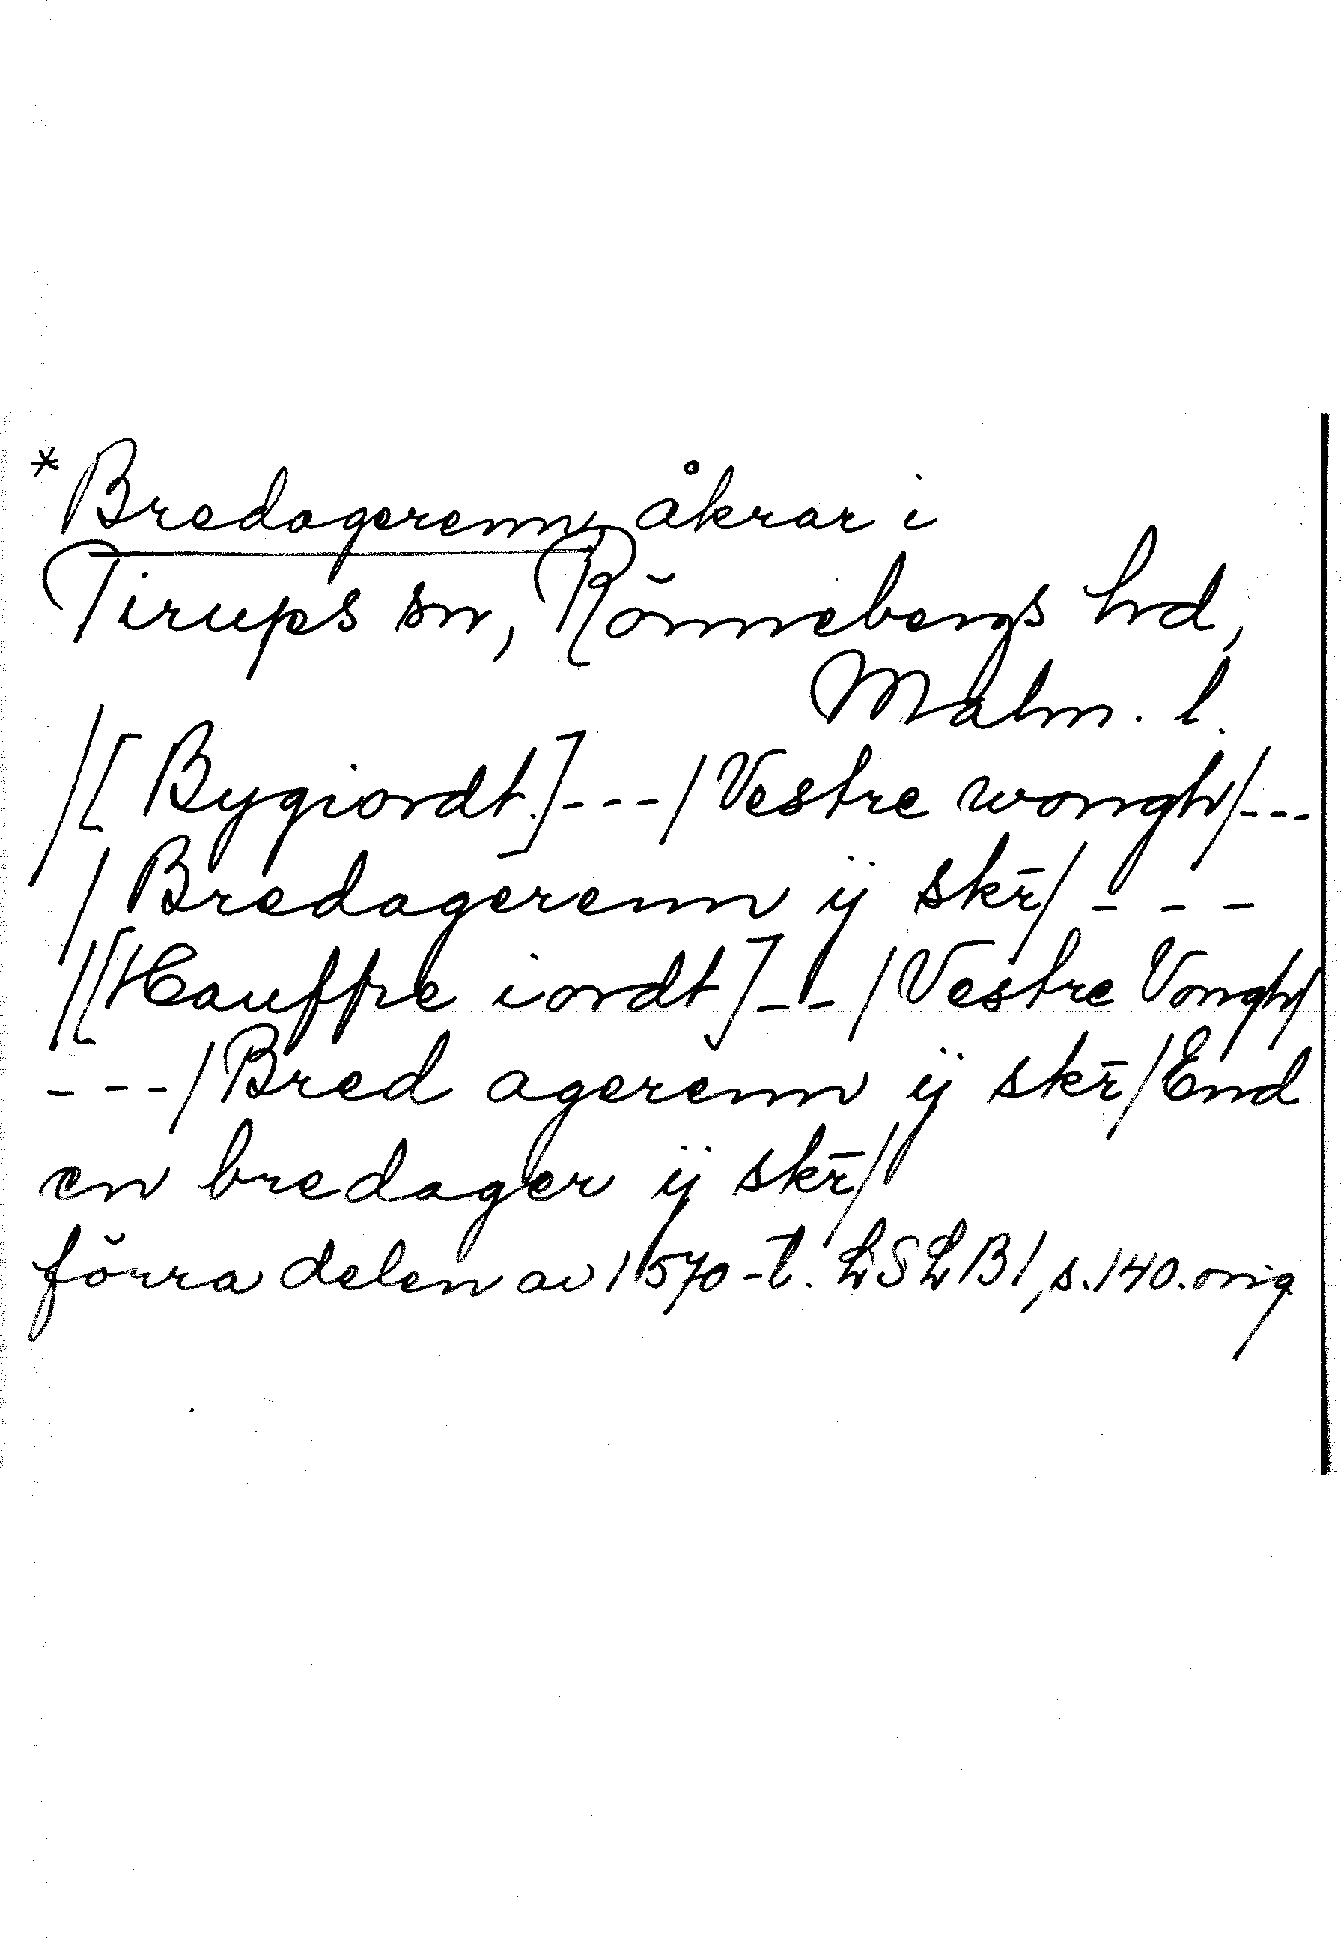 *Bredagerenn, åkrar i
Tirups sn, Rönnebergs hd,
Malm. l.
/[Bygiordt.]---/Vestre wongh/---
/Bredagerenn ij skr̄/---
/[Hauffre iordt]--/Vestre Vongh/
---/Bred agerenn ij skr̄/End
en bredager ij skr̄/
förra delen av 1570-t. LSLB1, s.140. orig